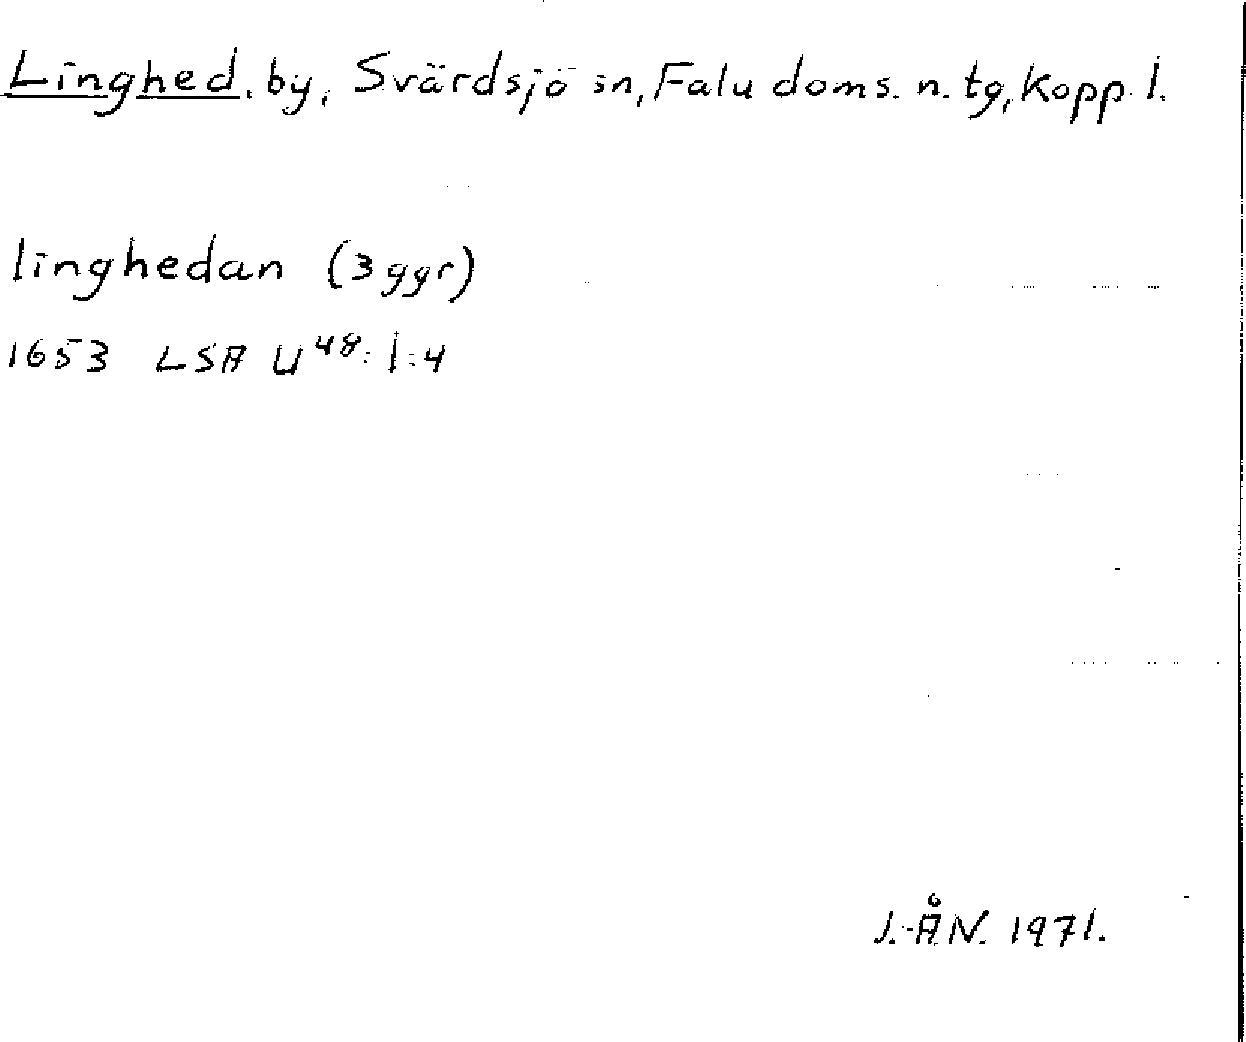 Linghed, by, Svärdsjö sn, Falu doms. n. tg, Kopp. l.
linghedan (3 ggr)
1653 LSA U⁴⁸: 1:4
J.-Å.N. 1971.